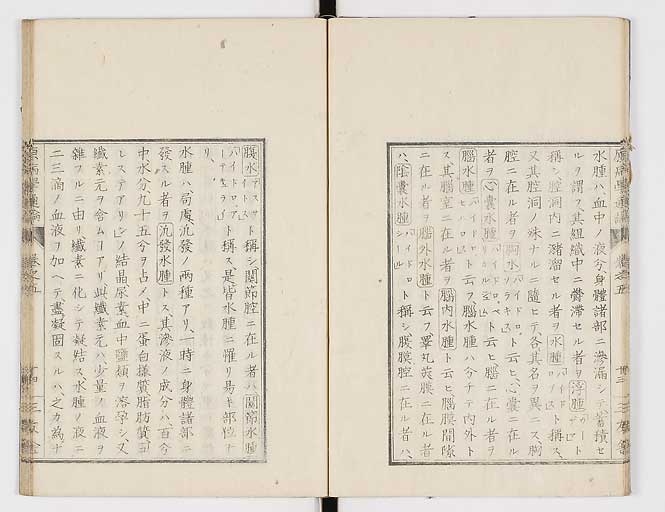 水腫ハ血中ノ液分身體諸部ニ滲漏シテ蓄積セ
ルヲ謂フ其組織中ニ鬱滞セル者ヲ浮腫ト
稱シ腔洞内ニ瀦溜セル者ヲ水腫ト稱ス
又其腔洞ノ殊ナルニ隨ヒテ各其名ヲ異ニス胸
腔ニ在ル者ヲ胸水ト云ヒ心嚢ニ在ル
者ヲ心嚢水腫ト云ヒ腦ニ在ル者ヲ
腦水腫ト稱ス腦水腫ハ分チテ内外ト
ス其腦室ニ在ル者ヲ腦内水腫ト云ヒ腦膜間隙
ニ在ル者ヲ腦外水腫ト云フ睪丸莢膜ニ在ル者
ハ陰嚢水腫ト稱シ腹膜腔ニ在ル者ハ
原病學通論 卷之五
腹水ト稱シ關節腔ニ在ル者ハ關節水腫
ト稱ス是皆水腫ニ罹リ易キ部位ナ
リ
水腫ハ匐處流發ノ兩種アリ一時ニ身體諸部ニ
發スル者ヲ汎發水腫トス其滲液ノ成分ハ百分
中水分九十五分ヲ占メ中ニ蛋白樣質脂肪質
レステアリンノ結晶尿素血中鹽類ヲ溶孕シ又
纖素元ヲ含ムコアリ此纖素元ハ少量ノ血液ヲ
雜フルニ由リ纖素ニ化シテ凝結ス水腫ノ液ニ
二三滴ノ血液ヲ加ヘテ盡凝固スルハ之カ為ナ
原病學通論 卷之五